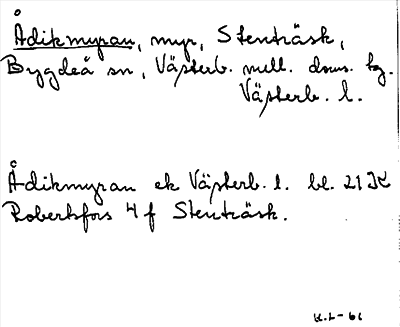 Ådikmyran, myr, Stenträsk,
Bygdeå sn, Västerb. mell. doms. tg.
Västerb. l.
Ådikmyran ek Västerb. l. bl. 21 K
Robertsfors 4 f Stenträsk.